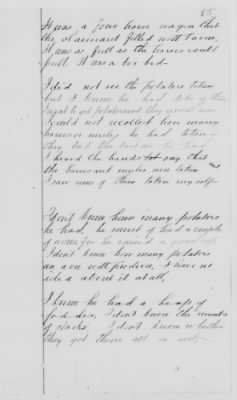 85.
It was a four horse wagon that
the claimant filled with bacon.
It was as full as the horses could
pull. It was a box bed—
I did not see the potatoes taken
but I know he had lots of them
I went to get potatoes and they were
I could not recollect how many
horses or mules he had taken—
they
I heard the hands say that
the horses and mules were taken and
I saw some of them taken myself—
I don't know how many potatoes
he had, he must of had a couple
of acres for he raised a good
I don't know how many potatoes
an acre will produce, I have no
idea about it at all,
I know he had a heap of
fodder, I don't know the number
of stacks. I don't know whether
they got them all or not—